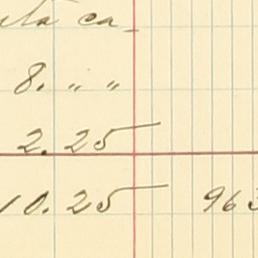 ca
8. " "
2.25
10.25 963